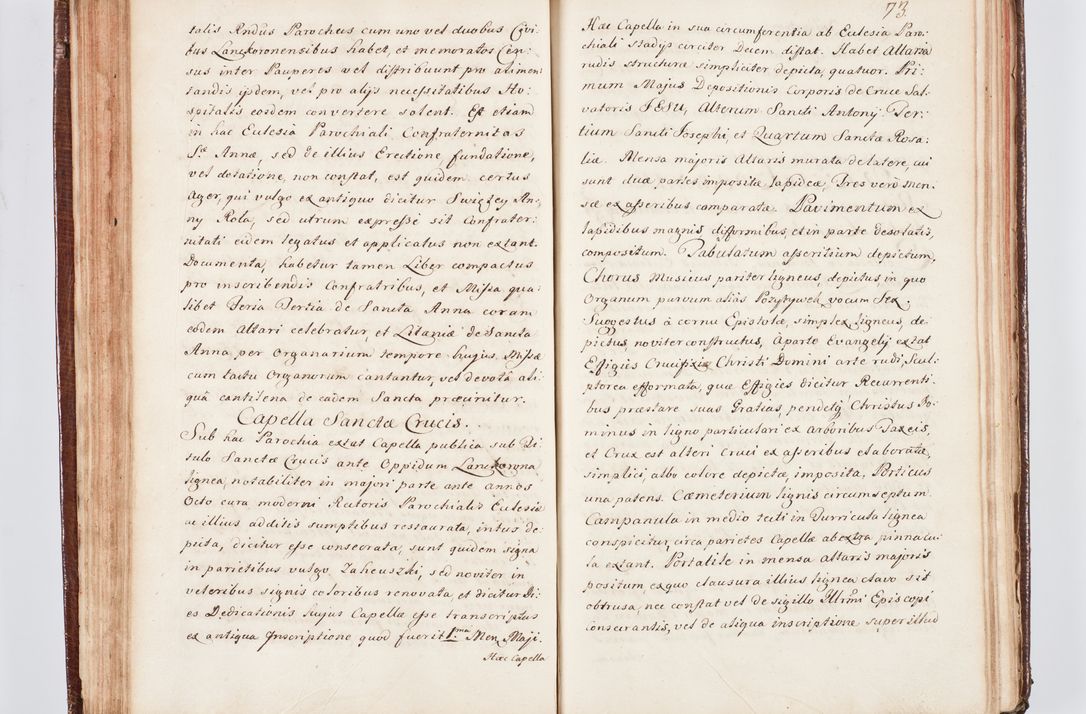 talis Andus Parochus cum uno vel duobus Civi:
bus Lanckoronensibus habet, et memoratos Cen:
sus inter Pauperes vel distribuunt pro alimen:
tandis ijsdem, vel pro alijs necessitatibus Ho:
spitalis eosdem convertere solent. Est etiam
in hac Eclesia Parochiali Confraternitas
S.æ Annæ, sed de illius Erectione, fundatione,
vel dotatione, non constat, est quidem certus
Ager, qui vulgo ex antiquo dicitur Swiętey An:
ny Rola, sed utrum expresse sit Confrater:
nitati eidem legatus et applicatus non extant.
Documenta, habetur tamen Liber compactus
pro inscribendis Confratribus, et Missa qua:
libet Feria Tertia de Sancta Anna coram
eodem Altari celebratur, et Litaniæ de Sancta
Anna per Organarium tempore hujus Missæ
cum tactu Organorum cantantur, vel devotâ ali:
quâ cantilena de eadem Sancta præcinitur.
Capella Sanctæ Crucis.
Sub hac Parochia extat Capella publica sub Ti:
tulo Sanctæ Crucis ante Oppidum Lanckorona
lignea, notabiliter in majori parte ante annos
Octo cura moderni Rectoris Parochialis Eclesiæ
ac illius additis sumptibus restaurata, intus de:
picta, dicitur esse consecrata, sunt quidem signa
in parietibus vulgo Zacheuszki, sed noviter in
veteribus signis coloribus renovata, et dicitur Di:
es Dedicationis hujus Capellæ esse transcriptus
ex antiqua Inscriptione quod fuerit 1.ma Men. Maji.
Hæc Capella
73.
Hæc Capella in sua circumferentia ab Eclesia Paro:
chiali stadijs circiter Decem distat. Habet Altaria
rudis structuræ simpliciter depicta, quatuor. Pri:
mum Majus Depositionis Corporis de Cruce Sal:
vatoris JESU, Alterum Sancti Antonij Ter:
tium Sancti Josephi, et Quartum Sanctæ Rosa:
liæ. Mensa majoris Altaris murata de latere, cui
sunt duæ partes impositæ lapideæ, Tres verò men:
sæ ex asseribus comparatæ. Pavimentum ex
lapidibus magnis difformibus, et in parte desolatis,
compositum. Tabulatum asseritium depictum,
Chorus Musicus pariter ligneus, depictus, in quo
Organum parvum aliàs Pozytywek vocum Sex.
Suggestus à cornu Epistolæ, simplex ligneus, de:
pictus, noviter constructus, A parte Evangelij extat
Effigies Crucifixi Christi Domini arte rudi, Scul:
ptorea efformata, quæ Effigies dicitur Recurrenti:
bus præstare suas Gratias, pendetq3 Christus Do:
minus in ligno particulari ex arboribus Taxeis,
et Crux est alteri Cruci ex asseribus elaboratæ,
simplici, albo colore depictæ, imposita. Porticus
una patens. Cæmeterium lignis circumseptum.
Campanula in medio tecti in Turricula lignea
conspicitur, circa parietes Capellæ ab extra pinnacu:
la extant. Portatile in mensa altaris majoris
positum, ex quo clausura illius lignea clavo sit
obtrusa, nec constat vel de sigillo Illrmi Episcopi
consecrantis, vel de aliqua inscriptione super illud